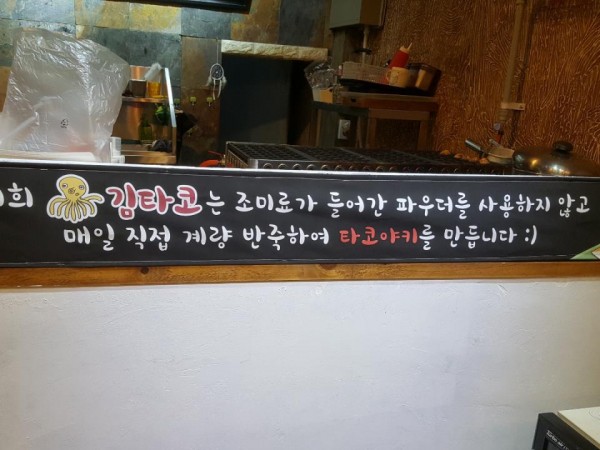 희 김타코는 조미료가 들어간 파우더를 사용하지 않고
매일 직접 계량 반죽하여 타코야키를 만듭니다 :)